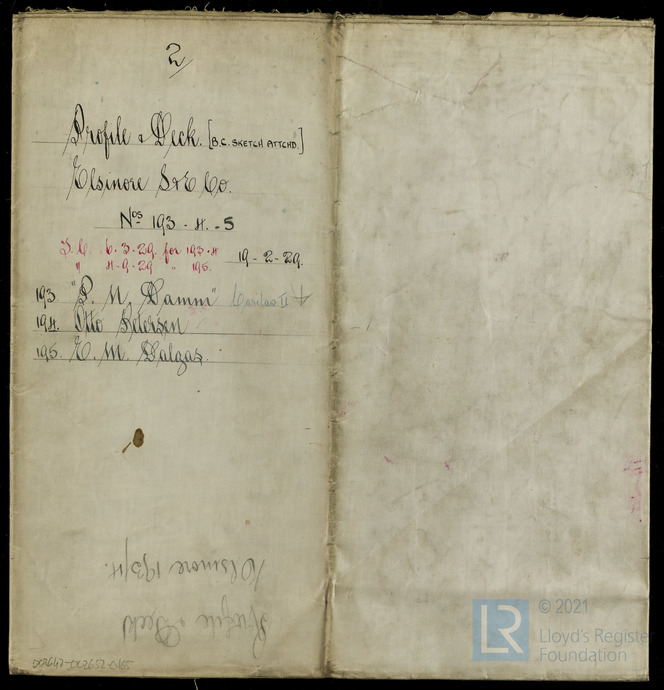 2/
Profile & Deck. [B.C. SKETCH ATTCHD.]
Elsinore S&E Co.
Nos 193 - 4 - 5
S.C. 6-3-29 for 193-4 19-2-29.
" 4-9-29 " 195.
193 "P. N. Damm" Caritas II
194. Otto Petersen
195. E. M. Dalgas.
Elsinore 193/4.
Profile & Deck
© 2021
LR Lloyd's Register
Foundation